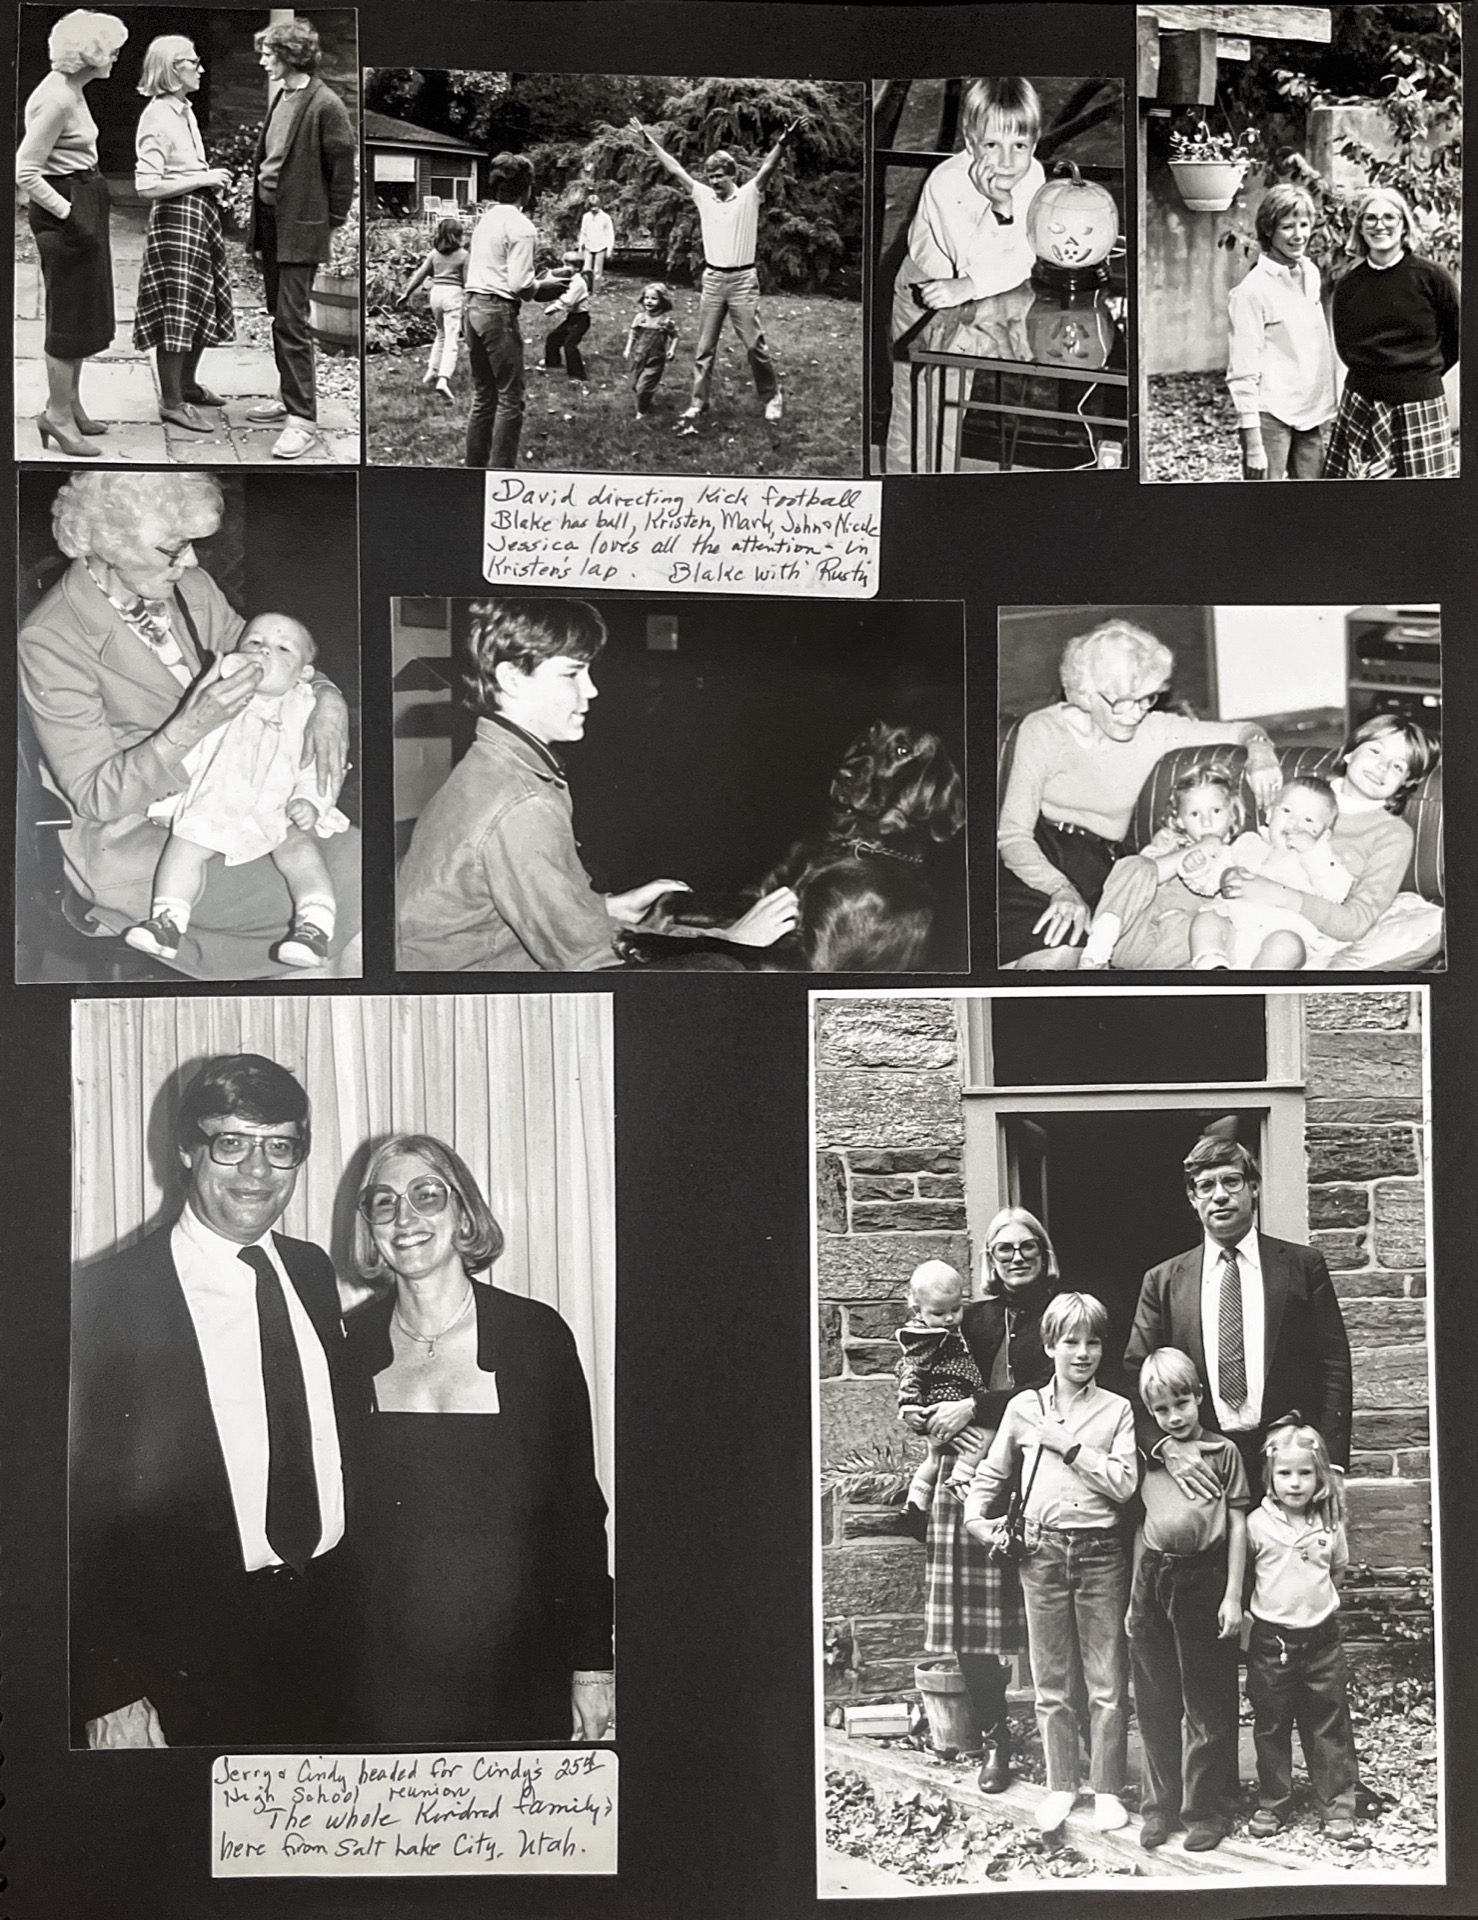 David directing Kick football
Blake has ball, Kristen, Mark, John & Nicole
Jessica loves all the attention - in
Kristen's lap. Blake with Rusty
Jerry & Cindy headed for Cindy's 25th
High School reunion
The whole Kindred family,
here from Salt Lake City, Utah.